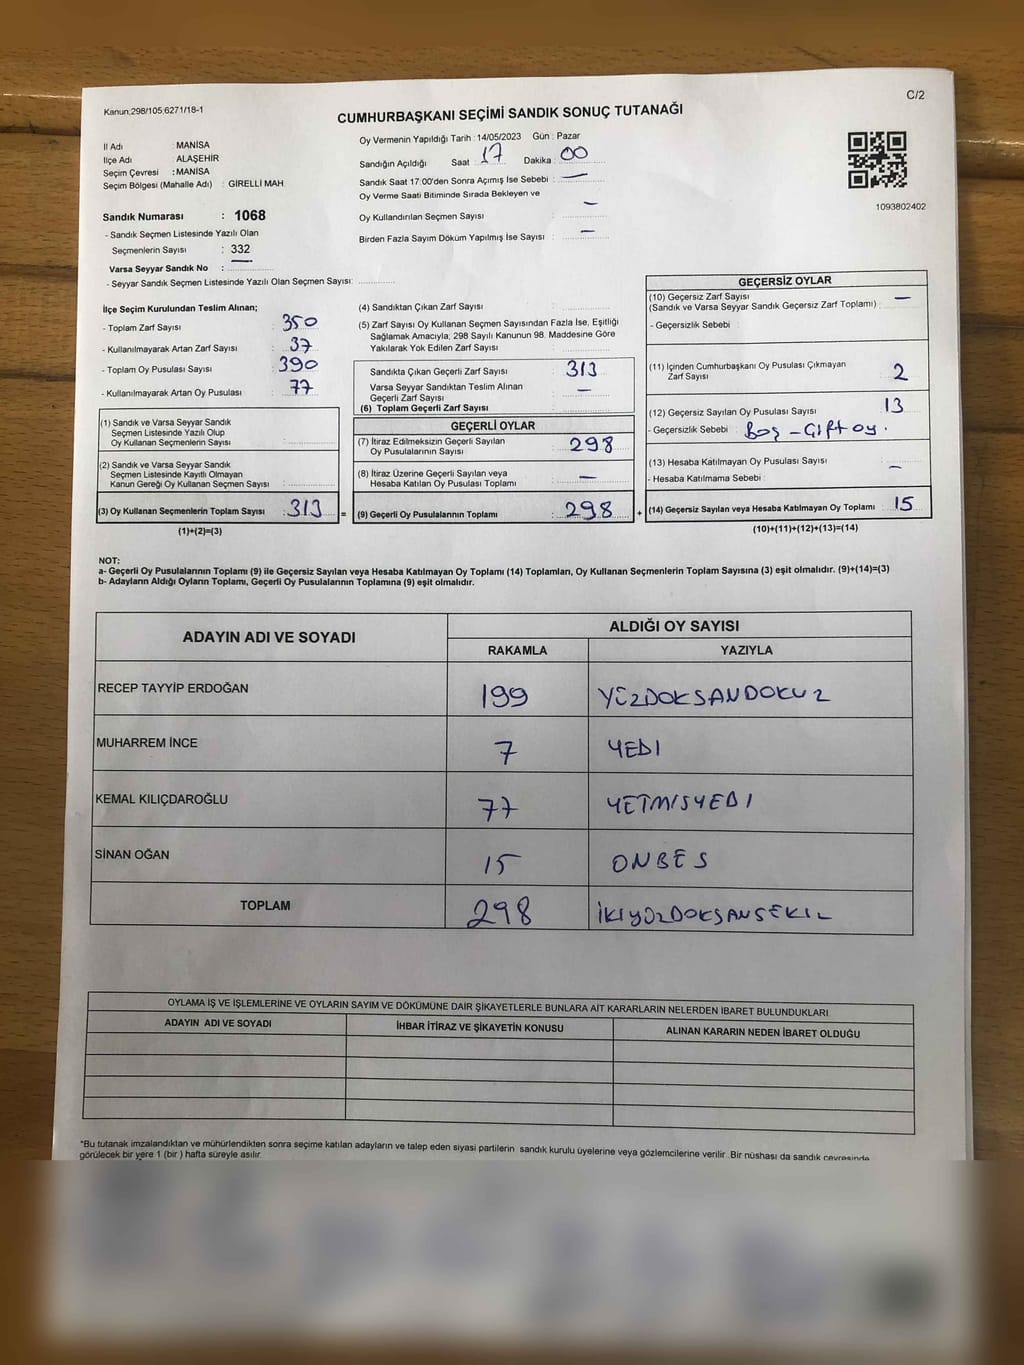 Kanun:298/105;6271/18-1
C/2
CUMHURBAŞKANI SEÇİMİ SANDIK SONUÇ TUTANAĞI
İl Adı : MANİSA
İlçe Adı : ALAŞEHİR
Seçim Çevresi : MANİSA
Seçim Bölgesi (Mahalle Adı) : GİRELLİ MAH
Sandık Numarası : 1068
- Sandık Seçmen Listesinde Yazılı Olan
Seçmenlerin Sayısı : 332
Varsa Seyyar Sandık No : —
- Seyyar Sandık Seçmen Listesinde Yazılı Olan Seçmen Sayısı:
Oy Vermenin Yapıldığı Tarih : 14/05/2023 Gün : Pazar
Sandığın Açıldığı Saat : 17 Dakika : 00
Sandık Saat 17:00'den Sonra Açımış İse Sebebi : —
Oy Verme Saati Bitiminde Sırada Bekleyen ve
Oy Kullandırılan Seçmen Sayısı : —
Birden Fazla Sayım Döküm Yapılmış İse Sayısı : —
1093802402
İlçe Seçim Kurulundan Teslim Alınan;
- Toplam Zarf Sayısı : 350
- Kullanılmayarak Artan Zarf Sayısı : 37
- Toplam Oy Pusulası Sayısı : 390
- Kullanılmayarak Artan Oy Pusulası : 77
(1) Sandık ve Varsa Seyyar Sandık
Seçmen Listesinde Yazılı Olup
Oy Kullanan Seçmenlerin Sayısı :
(2) Sandık ve Varsa Seyyar Sandık
Seçmen Listesinde Kayıtlı Olmayan
Kanun Gereği Oy Kullanan Seçmen Sayısı :
(3) Oy Kullanan Seçmenlerin Toplam Sayısı : 313 =
(1)+(2)=(3)
(4) Sandıktan Çıkan Zarf Sayısı :
(5) Zarf Sayısı Oy Kullanan Seçmen Sayısından Fazla İse, Eşitliği
Sağlamak Amacıyla, 298 Sayılı Kanunun 98. Maddesine Göre
Yakılarak Yok Edilen Zarf Sayısı :
Sandıkta Çıkan Geçerli Zarf Sayısı : 313
Varsa Seyyar Sandıktan Teslim Alınan
Geçerli Zarf Sayısı : —
(6) Toplam Geçerli Zarf Sayısı :
GEÇERLİ OYLAR
(7) İtiraz Edilmeksizin Geçerli Sayılan
Oy Pusulalarının Sayısı : 298
(8) İtiraz Üzerine Geçerli Sayılan veya
Hesaba Katılan Oy Pusulası Toplamı : —
(9) Geçerli Oy Pusulalarının Toplamı : 298 +
GEÇERSİZ OYLAR
(10) Geçersiz Zarf Sayısı —
(Sandık ve Varsa Seyyar Sandık Geçersiz Zarf Toplamı) :
- Geçersizlik Sebebi :
(11) İçinden Cumhurbaşkanı Oy Pusulası Çıkmayan
Zarf Sayısı : 2
(12) Geçersiz Sayılan Oy Pusulası Sayısı : 13
- Geçersizlik Sebebi : Boş - Çift oy.
(13) Hesaba Katılmayan Oy Pusulası Sayısı : —
- Hesaba Katılmama Sebebi :
(14) Geçersiz Sayılan veya Hesaba Katılmayan Oy Toplamı : 15
(10)+(11)+(12)+(13)=(14)
NOT:
a- Geçerli Oy Pusulalarının Toplamı (9) ile Geçersiz Sayılan veya Hesaba Katılmayan Oy Toplamı (14) Toplamları, Oy Kullanan Seçmenlerin Toplam Sayısına (3) eşit olmalıdır. (9)+(14)=(3)
b- Adayların Aldığı Oyların Toplamı, Geçerli Oy Pusulalarının Toplamına (9) eşit olmalıdır.
ADAYIN ADI VE SOYADI ALDIĞI OY SAYISI
RAKAMLA YAZIYLA
RECEP TAYYİP ERDOĞAN 199 YÜZDOKSANDOKUZ
MUHARREM İNCE 7 YEDİ
KEMAL KILIÇDAROĞLU 77 YETMISYEDI
SİNAN OĞAN 15 ONBEŞ
TOPLAM 298 İKİYÜZDOKSANSEKİZ
OYLAMA İŞ VE İŞLEMLERİNE VE OYLARIN SAYIM VE DÖKÜMÜNE DAİR ŞİKAYETLERLE BUNLARA AİT KARARLARIN NELERDEN İBARET BULUNDUKLARI
ADAYIN ADI VE SOYADI İHBAR İTİRAZ VE ŞİKAYETİN KONUSU ALINAN KARARIN NEDEN İBARET OLDUĞU
*Bu tutanak imzalandıktan ve mühürlendikten sonra seçime katılan adayların ve talep eden siyasi partilerin sandık kurulu üyelerine veya gözlemcilerine verilir .Bir nüshası da sandık çevresinde
görülecek bir yere 1 (bir ) hafta süreyle asılır.